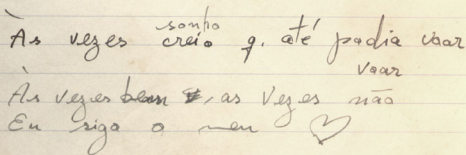 sonho
Às vezes creio q. até podia voar
voar
Às vezes bem, as vezes não
Eu sigo o meu ♡